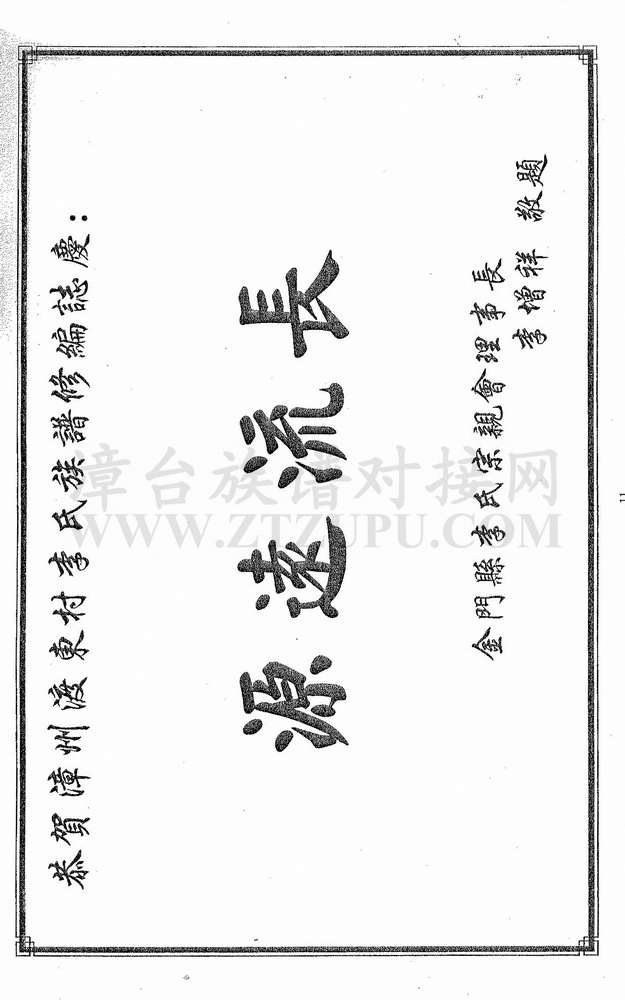 恭賀漳州渡東村李氏族譜修編誌慶：
源遠流長
金門縣李氏宗親會理事長
李增祥 敬題
漳台族谱对接网
WWW.ZTZUPU.COM
11